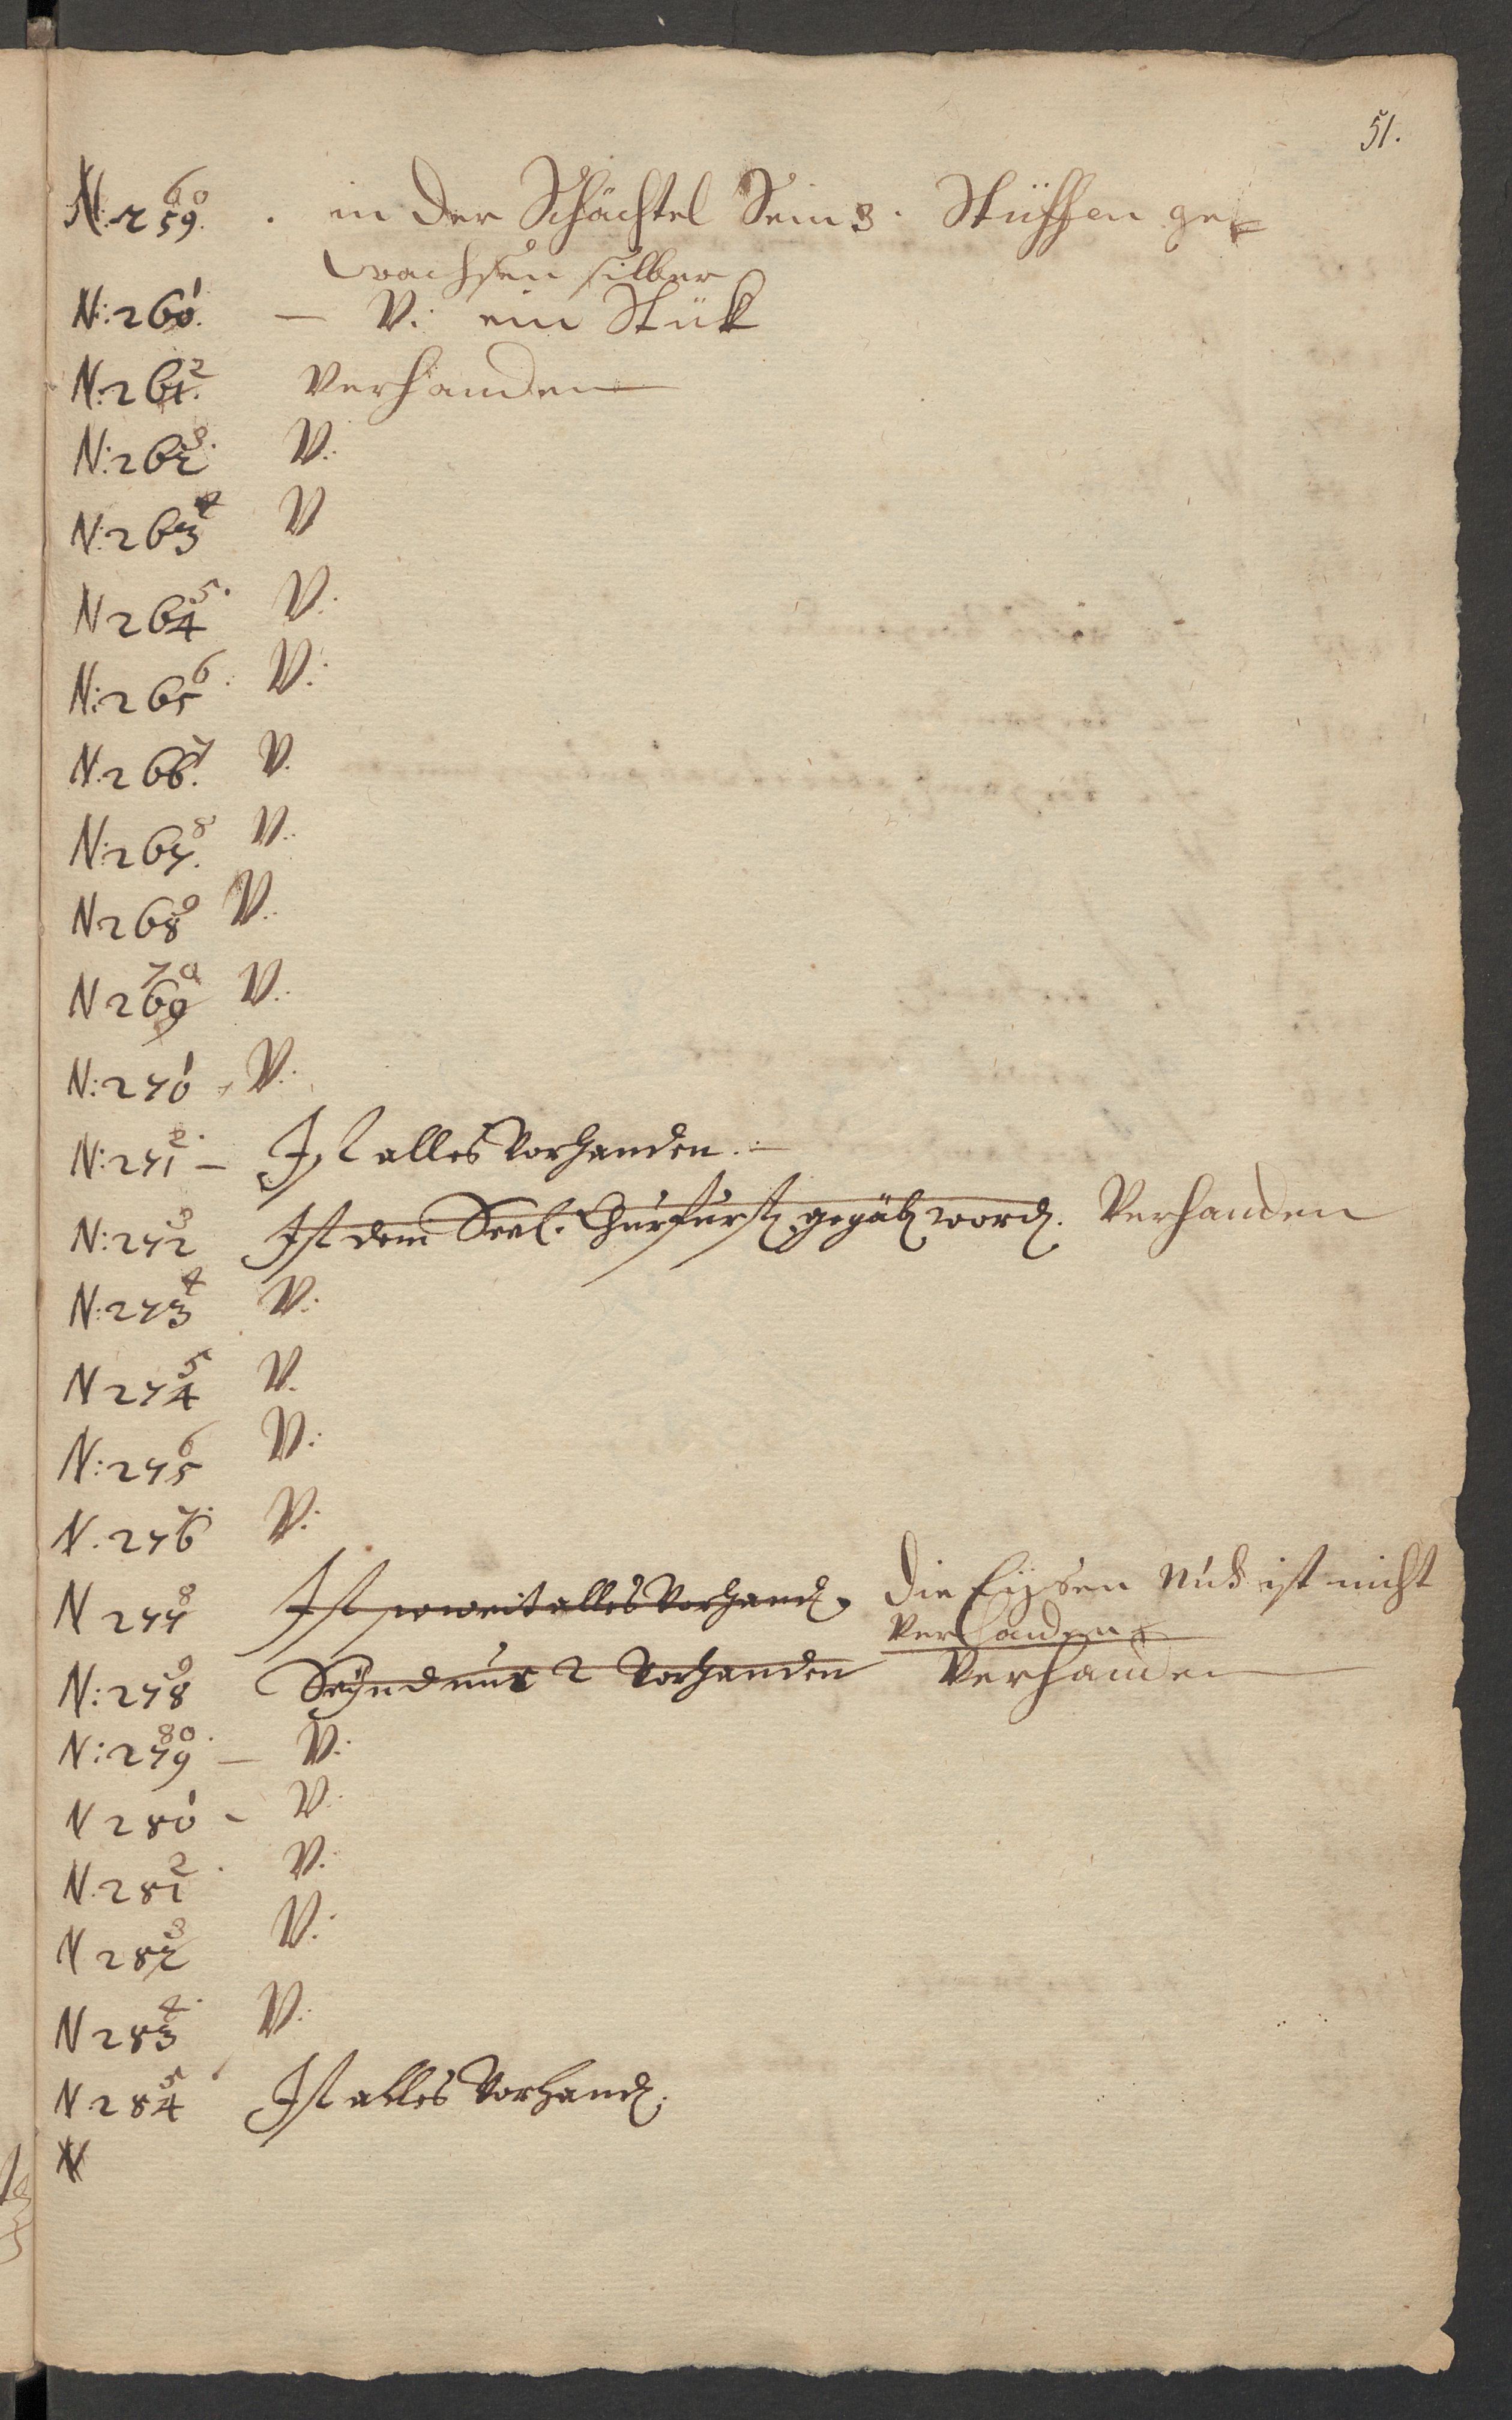 51.
N: 259. 60 . in der Schächtel Sein 3. Stüffen ge=
wachsen silber
N: 260. 1 — V: ein Stük
N: 261. 2 Verhanden
N: 262 3. V.:
N: 263 4 V
N 264 5. V.
N: 265 6. V.:
N. 266. 7 V.
N: 267. 8 V.:
N 268 9 V.:
N 269 70 V.:
N: 270 1 V.:
N: 271 2. — Ist alles Vorhanden.—
N: 272 3 Ist dem Seel. Churfürst gegäb word. Verhanden
N: 273 4 V.:
N 274 5 V.
N: 275 6 V.:
N. 276 7. V.:
N 277 8 Ist soweit alles Vorhand. die Eyssen Nuß ist nicht
verhanden
N: 278 9 Seynd nur 2 Vorhanden Verhanden
N: 279 80. — V.:
N 280 1 - V.
N. 281 2. V.:
N 282 3 V.:
N 283 4. V.:
N 284 5 Ist alles Vorhand.
N